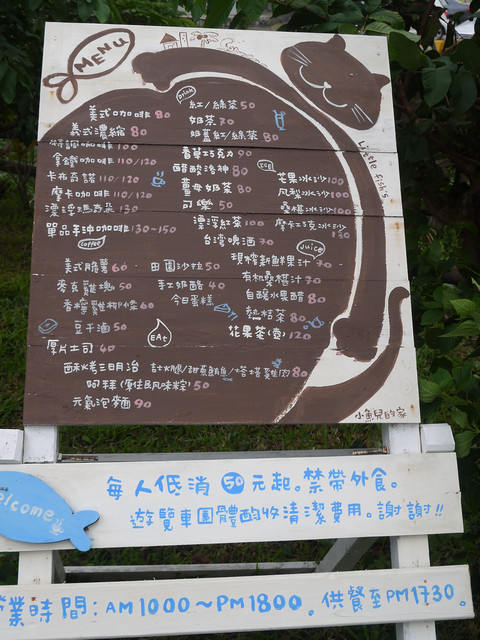 MENU
Little fish's
美式咖啡 80
美式濃縮 80
特調咖啡 100
拿鐵咖啡 110/120
卡布奇諾 110/120
摩卡咖啡 110/120
漂浮瑪奇朵 130
單品手沖咖啡 130~150
coffee
Drink
紅/綠茶 50
奶茶 70
奶蓋紅/綠茶 80
香草巧克力 90
醋酸洛神 80
薑母奶茶 80
可樂 50
漂浮紅茶 100
台灣啤酒 70
ICE
芒果冰沙 100
鳳梨冰沙 100
桑椹冰沙 100
摩卡巧克冰沙 130
Juice
現榨新鮮果汁 70
有机桑椹汁 70
自釀水果醋 80
熱桔茶 80
花果茶(壺) 120
美式脆薯 60
麥克雞塊 50
香檸雞柳條 60
豆干滷 50
厚片土司 40
田園沙拉 50
手工奶酪 40
今日蛋糕
EAt
酥烤三明治
阿拜(原住民風味粽) 50
元氣泡麵 90
小魚兒的家
welcome
每人低消50元起。禁帶外食。
遊覽車團體酌收清潔費用。謝謝!!
營業時間:AM1000~PM1800。供餐至PM1730。